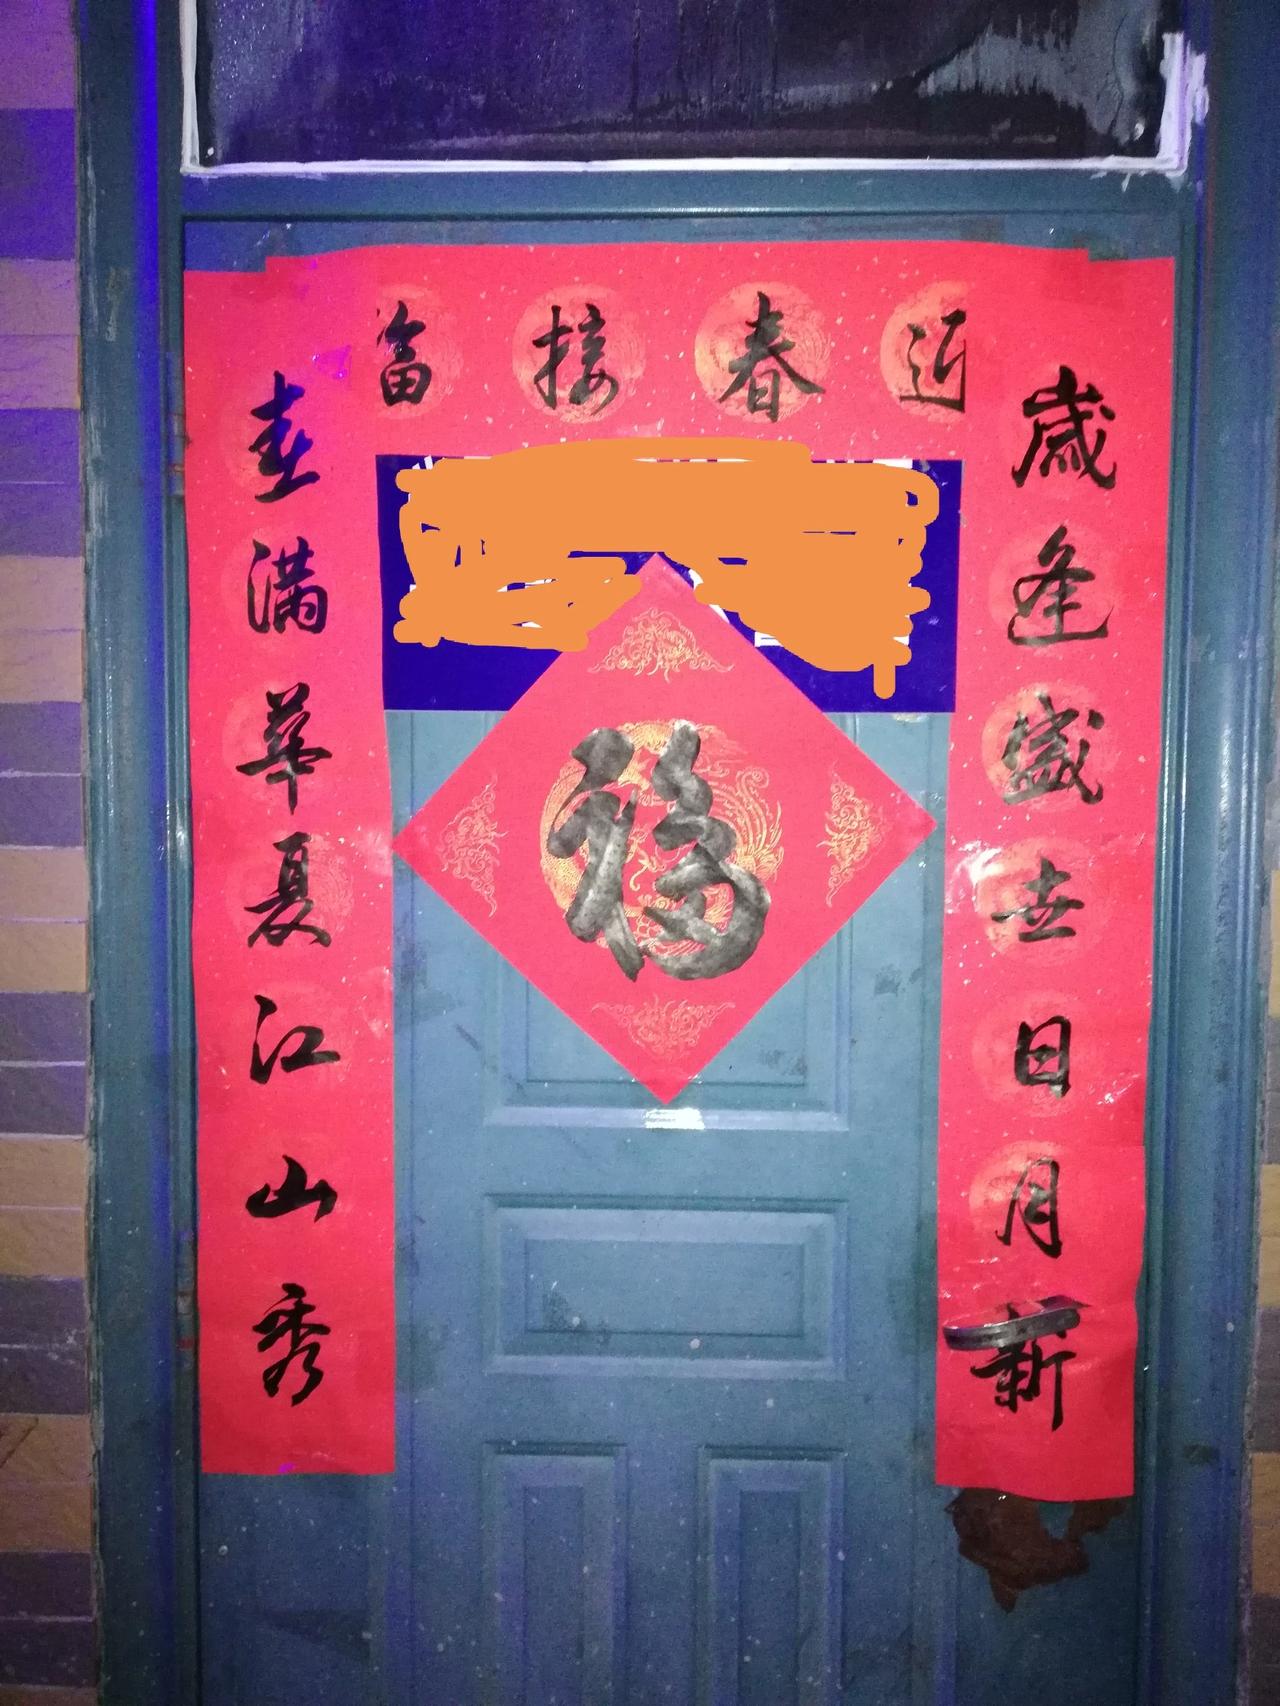 迎春接福
歲逢盛世日月新
春满華夏江山秀
福